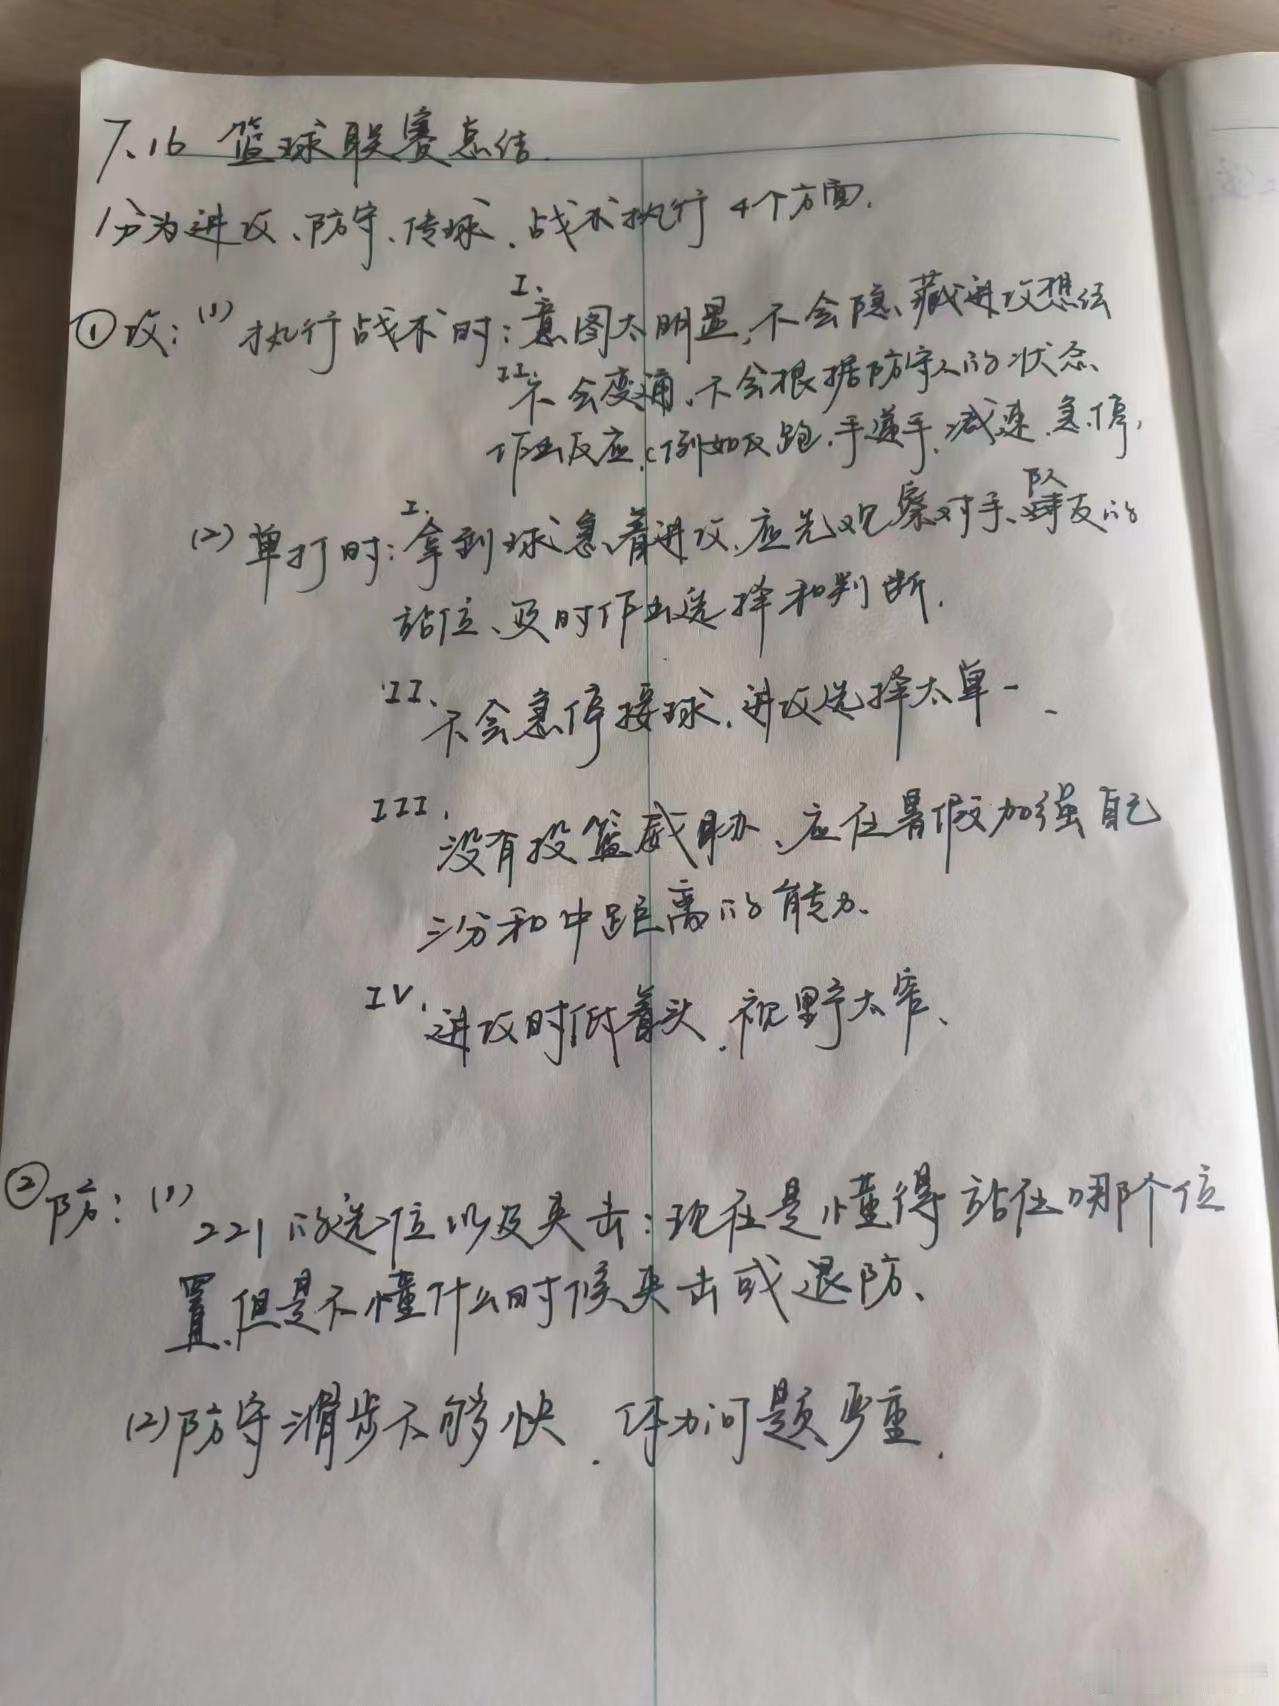 7.16 篮球联赛总结.
分为进攻、防守、传球、战术执行4个方面.
①攻:(1)执行战术时:I.意图太明显,不会隐藏进攻想法
II.不会变通、不会根据防守人的状态、
作出反应.(例如反跑、手递手、减速、急停,
(2)单打时:I.拿到球急着进攻、应先观察对手、队友的
站位、及时作出选择和判断.
II、不会急停接球.进攻选择太单一、
III.没有投篮威胁、应在暑假加强自己
三分和中距离的能力.
IV.进攻时低着头.视野太窄、
②防:(1)221的选位以及夹击:现在是懂得站在哪个位
置、但是不懂什么时候夹击或退防、
(2)防守滑步不够快.体力问题严重.